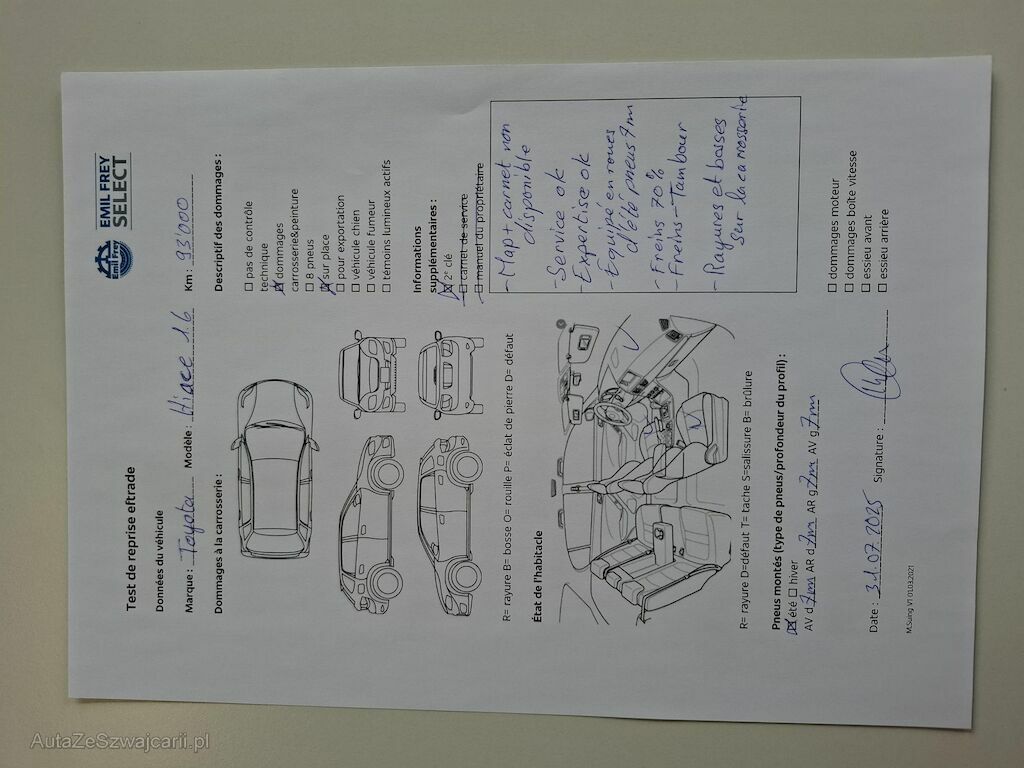 Emil Frey
EMIL FREY
SELECT
Test de reprise eftrade
Données du véhicule
Marque : Toyota Modèle : Hiace 1.6 Km : 93'000
Dommages à la carrosserie :
Descriptif des dommages :
pas de contrôle
technique
dommages
carrosserie&peinture
8 pneus
sur place
pour exportation
véhicule chien
véhicule fumeur
témoins lumineux actifs
Informations
supplémentaires :
2e clé
carnet de service
manuel du propriétaire
R= rayure B= bosse O= rouille P= éclat de pierre D= défaut
État de l'habitacle
- Map + carnet non
disponible
- Service ok
- Expertise ok
- Equipé en roues
d'été pneus 7m
- Freins 70%
- Freins - Tambour
- Rayures et bosses
sur la carrosserie
R= rayure D=défaut T= tache S=salissure B= brûlure
Pneus montés (type de pneus/profondeur du profil) :
été hiver
AV d 7m AR d 7m AR g 7m AV g 7m
dommages moteur
dommages boîte vitesse
essieu avant
essieu arrière
Date : 31.07.2025 Signature :
M.Suing V1 01.03.2021
AutaZeSzwajcarii.pl